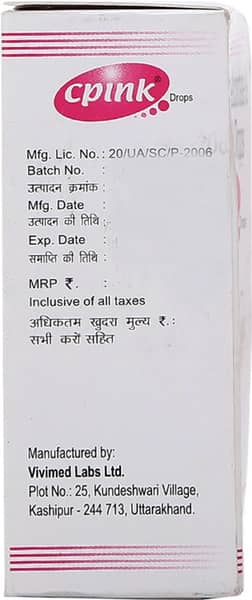 cpink®
Drops
Mfg. Lic. No. : 20/UA/SC/P-2006
Batch No. :
उत्पादन क्रमांक :
Mfg. Date :
उत्पादन की तिथि :
Exp. Date :
समाप्ति की तिथि :
MRP ₹. :
Inclusive of all taxes
अधिकतम खुदरा मुल्य ₹. :
सभी करों सहित
Manufactured by:
Vivimed Labs Ltd.
Plot No.: 25, Kundeshwari Village,
Kashipur - 244 713, Uttarakhand.